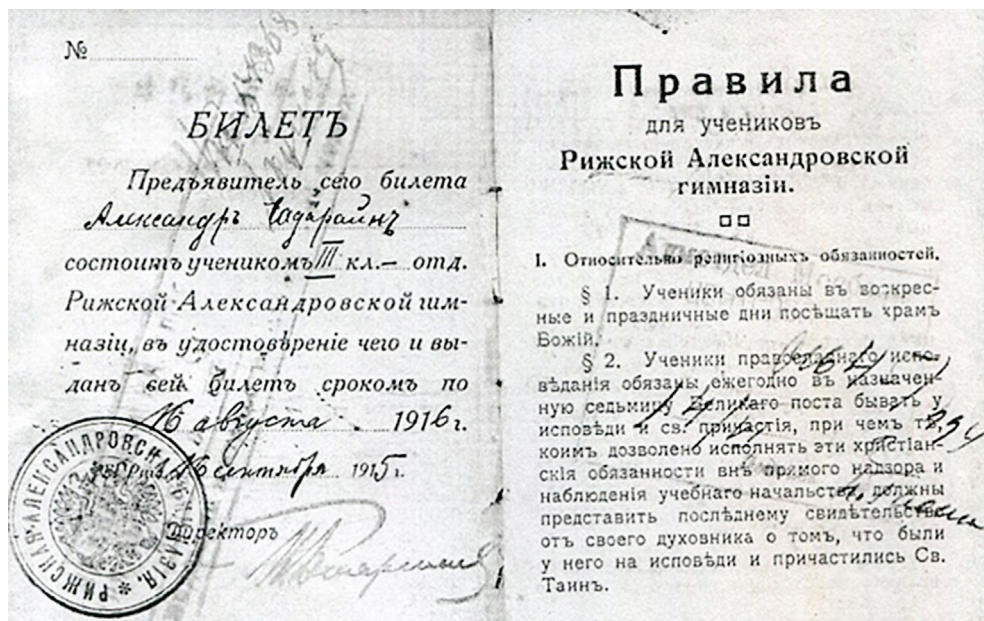 №
БИЛЕТЪ
Предъявитель сего билета
Александръ
состоитъ ученикомъ III кл.— отд.
Рижской Александровской гим-
назіи, въ удостовѣреніе чего и вы-
данъ сей билетъ срокомъ по
16 августа 1916 г.
16 сентября 1915 г.
Директоръ
РИЖСКАЯ АЛЕКСАНДРОВСК ГИМНАЗІЯ.
Правила
для учениковъ
Рижской Александровской
гимназіи.
I. Относительно религіозныхъ обязанностей.
§ 1. Ученики обязаны въ воскрес-
ные и праздничные дни посѣщать храмъ
Божій.
§ 2. Ученики православнаго испо-
вѣданія обязаны ежегодно въ назначен-
ную седьмицу Великаго поста бывать у
исповѣди и св. причастія, при чемъ тѣ,
коимъ дозволено исполнять эти христіан-
скія обязанности внѣ прямого надзора и
наблюденія учебнаго начальства, должны
представить послѣднему свидѣтельство
отъ своего духовника о томъ, что были
у него на исповѣди и причастились Св.
Таинъ.